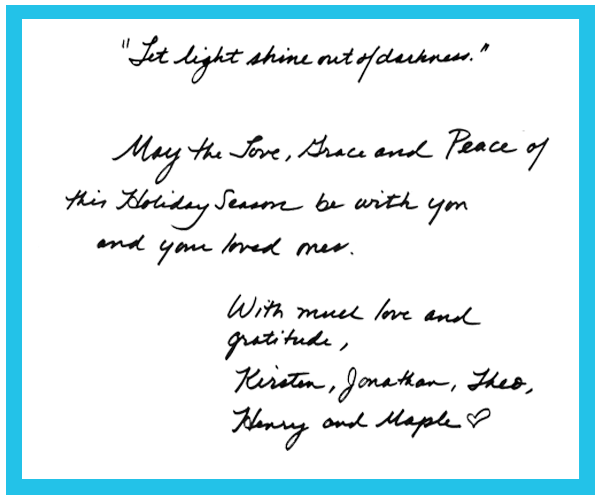 "Let light shine out of darkness."
May the Love, Grace and Peace of
this Holiday Season be with you
and your loved ones.
With much love and
gratitude,
Kirsten, Jonathan, Theo,
Henry and Maple ♡